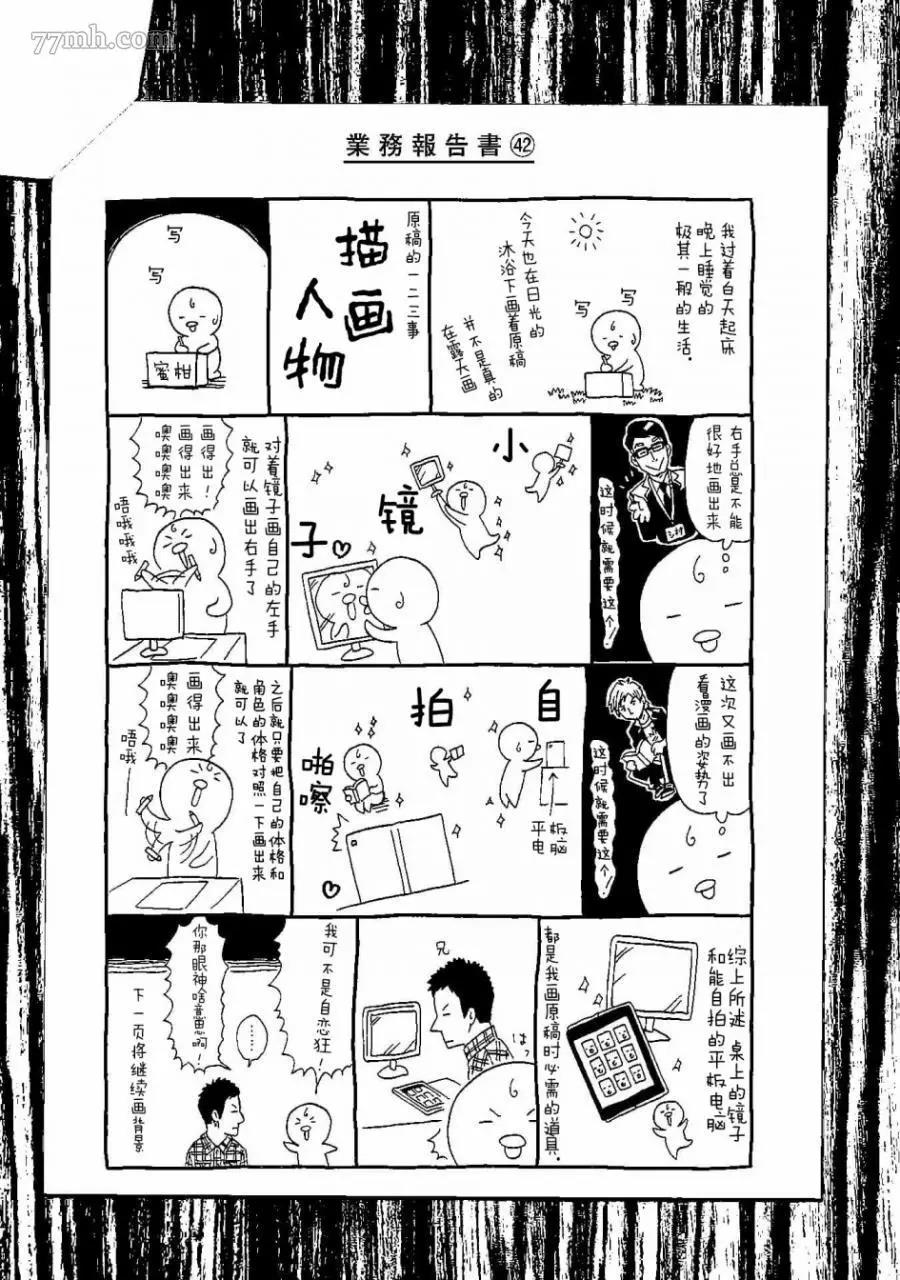 77mh.com
業務報告書㊷
我过着白天起床
晚上睡觉的
极其一般的生活.
写
写
今天也在日光的
沐浴下画着原稿
并不是真的
在露天画
原稿的一二三事
描画
人物
写
写
蜜柑
右手总是不能
很好地画出来
这时候就需要这个!
小
镜
子
♡
对着镜子画自己的左手
就可以画出右手了
画得出!
画得出来
噢噢噢噢
唔哦哦哦
这次又画不出
看漫画的姿势了
这时候就需要这个!
自
拍
啪嚓
♡
平板
电脑
之后就只要把自己的体格和
角色的体格对照一下画出来
就可以了
画得出来
噢噢噢噢
唔哦
综上所述 桌上的镜子
和能自拍的平板电脑
都是我画原稿时必需的道具.
兄
は?
我可不是自恋狂!
……
你那眼神啥意思啊!
下一页将继续画背景